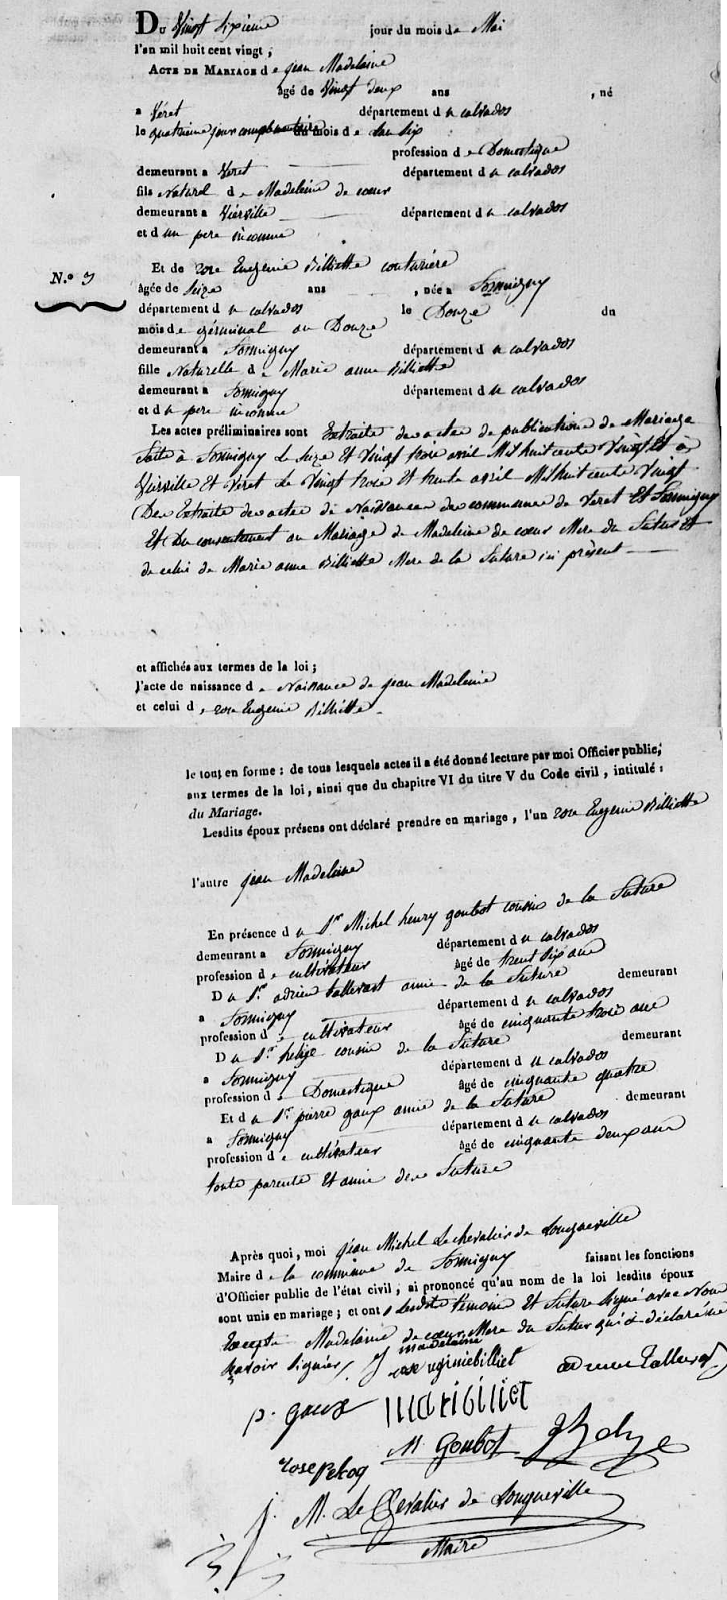 DU Vingt sixieme jour du mois de Mai
l'an mil huit cent vingt ;
ACTE DE MARIAGE de jean Madelaine
âgé de Vingt deux ans , né
a Veret département du calvados
le quatrieme jour complementaire du mois de l'an six
profession de Domestique
demeurant a Veret département du calvados
fils Naturel de Madeleine de coeur
demeurant a Vierville département du calvados
et d'un pere inconnu
Et de rose Eugenie Billiette couturière
N.º 3
âgée de Seize ans , née a Formigny
département du calvados le Douze du
mois de germinal an Douze
demeurant a Formigny département du calvados
fille Naturelle de Marie anne Billiette
demeurant a Formigny département du calvados
et du pere inconnu
Les actes préliminaires sont Extraits des actes de publications de Mariage
faite à Formigny Le Seize Et Vingt trois avril Mil huit cents Vingt Et à
Vierville Et Veret Le Vingt trois Et trente avril Mil huit cents Vingt
Des Extraits des actes de Naissances des communes de Veret Et Formigny
Et Du consentement au Mariage de Madeleine de coeur Mere du Futur Et
de celui de Marie anne Billiette Mere de la Future ici présent
et affichés aux termes de la loi ;
l'acte de naissance de Naissance de jean Madeleine
et celui d, rose Eugenie Billiette
le tout en forme : de tous lesquels actes il a été donné lecture par moi Officier public,
aux termes de la loi, ainsi que du chapitre VI du titre V du Code civil, intitulé :
du Mariage.
Lesdits époux présens ont déclaré prendre en mariage, l'un rose Eugenie Billiette
l'autre jean Madelaine
En présence du Sr Michel henry goubot cousin de la Future
demeurant a Formigny département du calvados
profession de cultivateur âgé de trent Six ans
Du Sr. adrien tallevast amie de la Future demeurant
a Formigny département du calvados
profession de cultivateur âgé de cinquante trois ans
Du Sr. helye cousin de la Future demeurant
a Formigny département du calvados
profession de Domestique âgé de cinquante quatre
Et du Sr. pierre gaux amie de la Future demeurant
a Formigny département du calvados
profession de cultivateur âgé de cinquante deux ans
toute parents Et amie des Future
Après quoi, moi jean Michel Le chevalier de Longueville
Maire de la commune de Formigny faisant les fonctions
d'Officier public de l'état civil, ai prononcé qu'au nom de la loi lesdits époux
sont unis en mariage ; et ont lesdits temoins Et Future Signé avec Nous
Excepte Madelaine de coeur Mere du Futur qui a déclaré ne
Savoir Signier J madelaine
rose ugeniebilliet adrien Tallevast
p. gaux maribilliet
M Goubot J helye
rose Pekoq
M. Le Chevalier de Longueville
Maire